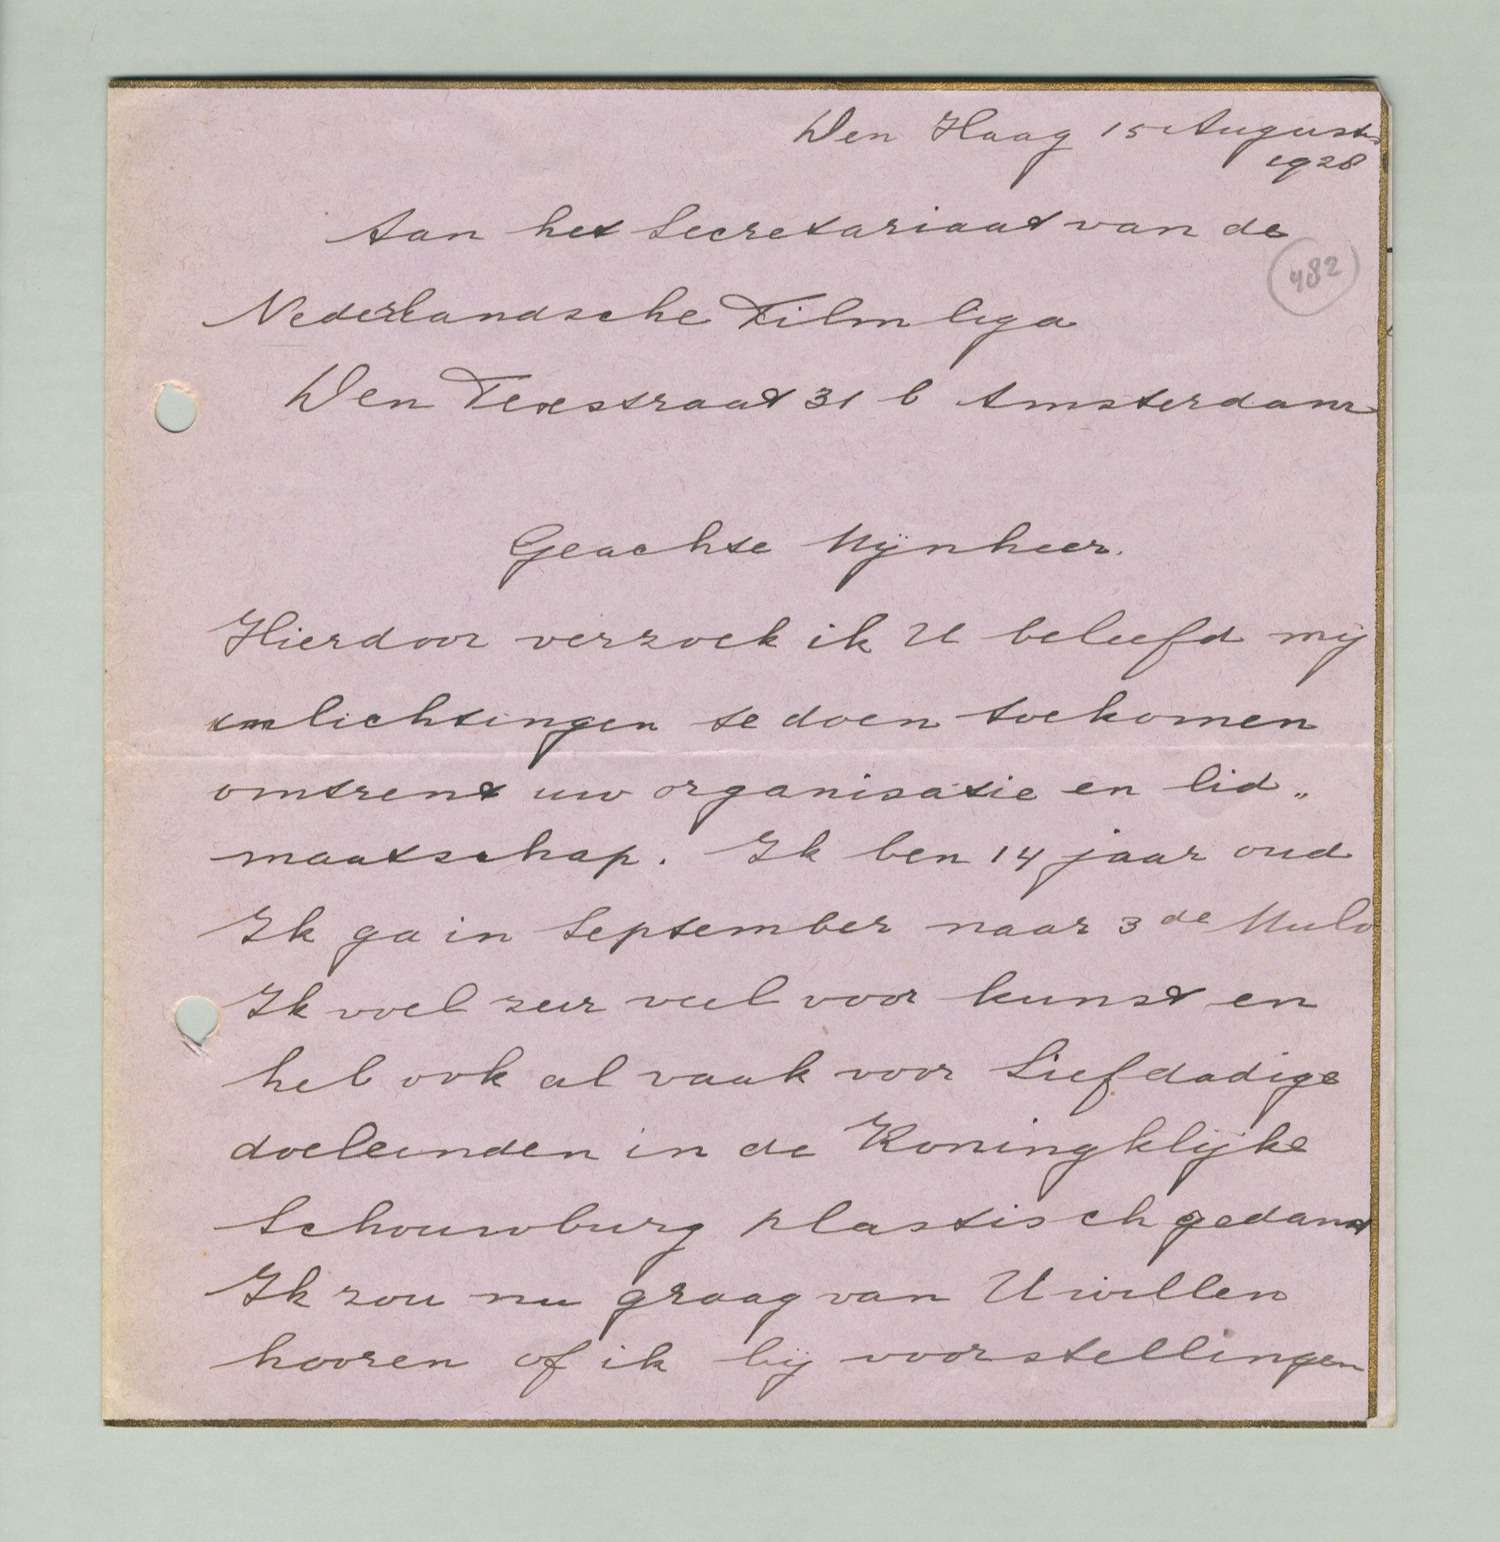 Den Haag 15 Augustus
1928
Aan het Secretariaat van de
482
Nederlandsche Filmliga
Den Texstraat 31 b Amsterdam
Geachte Mijnheer.
Hierdoor verzoek ik U beleefd mij
inlichtingen te doen toekomen
omtrent uw organisatie en lid„
maatschap. Ik ben 14 jaar oud
Ik ga in September naar 3de Mulo
Ik voel zeer veel voor kunst en
heb ook al vaak voor Liefdadige
doeleinden in de Koningklijke
Schouwburg plastisch gedanst
Ik zou nu graag van U willen
hooren of ik bij voorstellingen